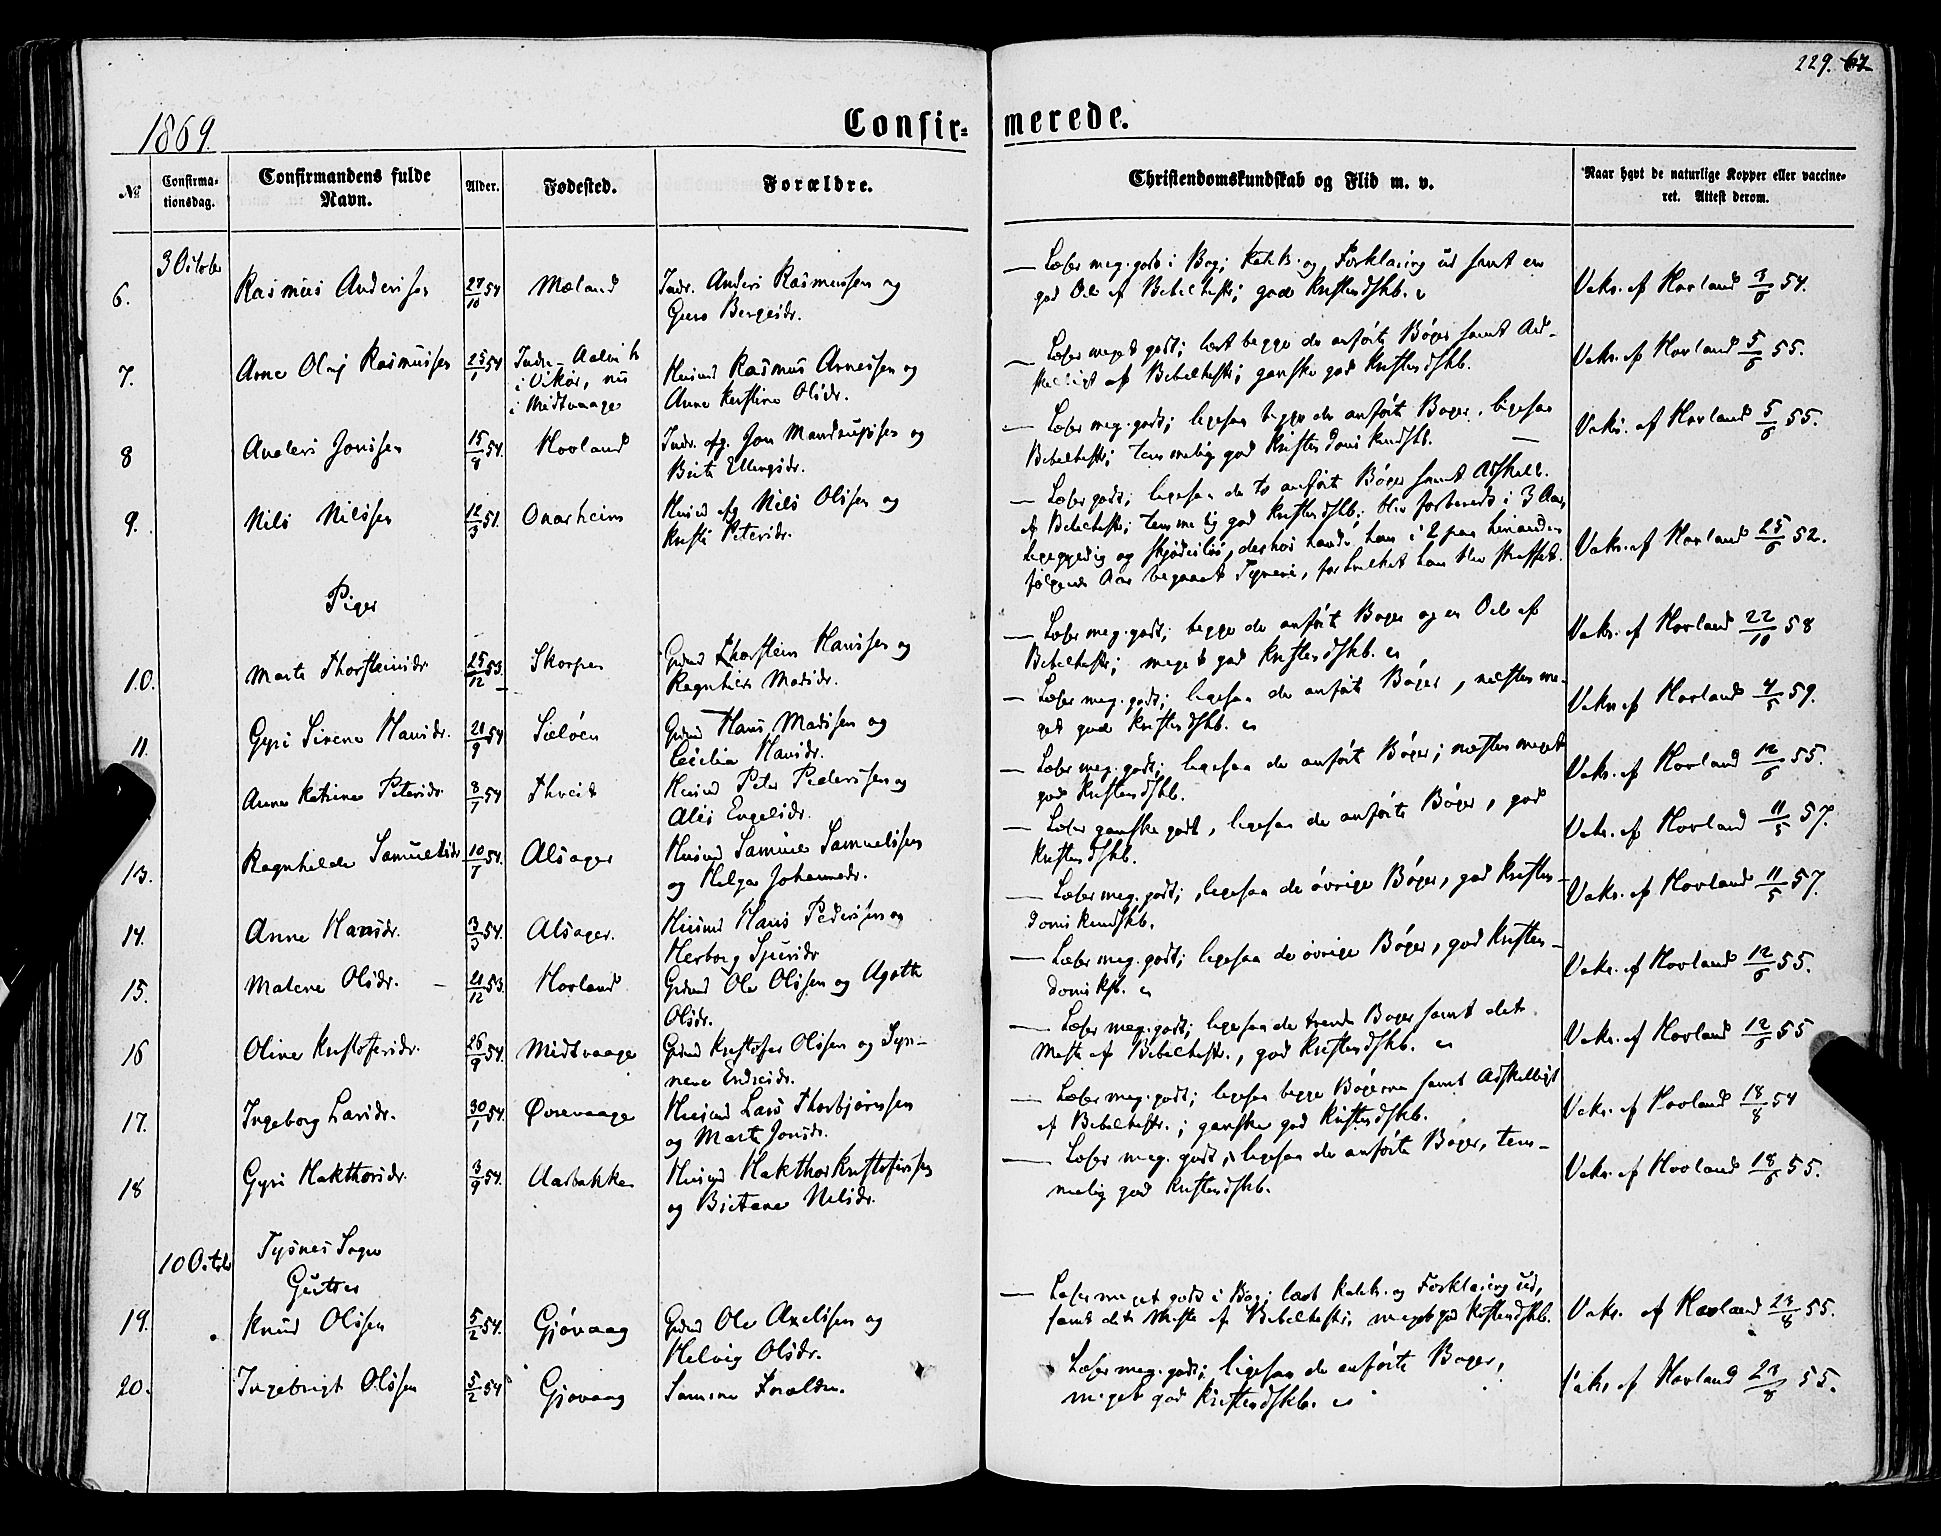 229. 62
1869.
Confir= merede.
№
Confirma-
tionsdag.
Confirmandens fulde
Navn.
Alder.
Fødested.
Forældre.
Christendomskundskab og Flid m. v.
Naar havt de naturlige Kopper eller vaccine-
ret. Attest derom.
3 October
6. Rasmus Andersen 27/10 54 Mæland Indr. Anders Rasmussen og
Guro Bergesdr.
— Læser meg. godt i Bog; Katek. og Forklaring ud samt en
god Del af Bibelhist.; god Kristendskb.
Vaks. af Hovland 3/6 54.
7. Arne Olaj Rasmussen 25/1 54 Indre-Aalvik
i Vikør, nu
i Midtvaage
Husmd Rasmus Arnessen og
Anne Kristine Olsdr.
— Læser meget godt; læst begge de anførte Bøger samt Ad-
skelligt af Bibelhist.; ganske god Kristendskb.
Vaks. af Hovland 5/6 55.
8 Anders Jonssen 15/8 54. Hovland Indr. og. Jon Mandrupssen og
Brita Ellingsdr.
— Læser meg. godt; ligesaa begge de anførte Bøger, ligesaa
Bibelhist.; temmelig god Kristendoms kundskb. —
Vaks. af Hovland 5/6 55.
9. Nils Nilssen 12/3 51. Onarheim Husmd og Nils Olssen og
Kristi Petersdr.
— Læser godt; ligesaa de to anførte Bøger samt Adskell.
af Bibelhist.; temmelig god Kristendskb; blev forberedt i 3 Aar,
ligegyldig og skjødesløs, derhos havde han i 2 paa hinanden
følgende Aar begaaet Tyveri, for hvilket han blev straffet.
Vaks. af Hovland 25/6 52.
Piger
10. Marta Thorsteinsdr 25/12 53. Skorpen Grdmd Thorstein Hanssen og
Ragnhild Madsdr.
— Læser meg. godt; begge de anført Bøger og en Del af
Bibelhist.; meget god Kristendskb.
Vaks. af Hovland 22/10 58
11. Gyri Sirene Hansdr. 21/9 54 Sæløen Grdmd Hans Madssen og
Cecilia Hansdr.
— Læser meg. godt; ligesaa de anført Bøger, næsten me-
get god Kristendskb.
Vaks. af Hovland 4/5 59.
Anna Katrina Petersdr. 8/1 54 Thveit Husmd Peter Pederssen og
Alis Engelsdr.
— Læser meg. godt; ligesaa de anført Bøger; næsten meget
god Kristendskb.
Vaks. af Hovland 12/6 55.
13. Ragnhilda Samuelsdr 10/1 54. Alsager Husmd Samuel Samuelssen
og Helga Johannesdr.
— Læser ganske godt, ligesaa de anførte Bøger, god
Kristendskb.
Vaks. af Hovland 11/5 57.
14. Anne Hansdr. 3/3 54. Alsager. Husmd Hans Pederssen og
Herborg Sjursdr
— Læser meg. godt; ligesaa de øvrige Bøger, god Kristen-
doms kundskb.
Vaks. af Hovland 11/5 57.
15. Malene Olsdr. 21/12 53. Hovland Grdmd Ole Olssen og Agatha
Olsdr.
— Læser meg. godt; ligesaa de øvrige Bøger, god Kristen-
doms ksk.
Vaks. af Hovland 12/6 55.
16 Oline Kristofersdr. 26/9 54. Midtvaage Grdmd Kristofer Olssen og Syn-
neve Endresdr.
— Læser meg. godt; ligesaa de trende Bøger samt det
Meste af Bibelhist., god Kristendskb.
Vaks. af Hovland 12/6 55
17. Ingeborg Larsdr. 30/1 54. Øvrevaage Husmd Lars Thorbjørnssen
og Marta Jonsdr.
— Læser meg. godt; ligesaa begge Bøgerne samt Adskelligt
af Bibelhistr.; ganske god Kristendskb.
Vaks. af Hovland 18/8 54
18 Gyri Hakthorsdr. 3/9 54. Aarbakke Husmd Hakthor Kristoferssen
og Birtane Nilsdr.
— Læser meg. godt, ligesaa de anførte Bøger, tem-
melig god Kristendskb.
Vaks. af Hovland 18/6 55.
10 Octobr
Tysnes Sogn
Gutter
19. Knud Olssen 5/2 54. Gjøvaag Grdmd Ole Axelssen og
Helvig Olsdr.
— Læser meget godt i Bog; læst Katek. og Forklaring ud,
samt det Meste af Bibelhistr. meget god Kristendskb.
Vaks. af Hovland 23/8 55.
20. Ingebrigt Olssen 5/2 54 Gjøvaag Samme Forældre.
Læser meg. godt; ligesaa de anførte Bøger,
meget god Kristendskb.
Vaks. af Hovland 23/8 55.